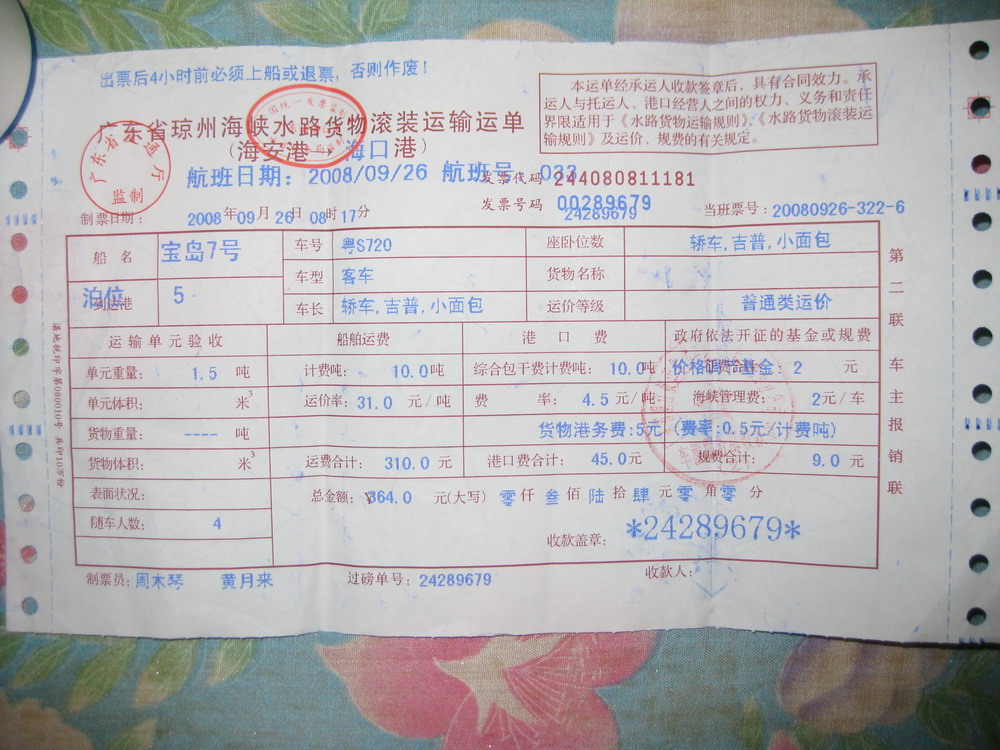 出票后4小时前必须上船或退票，否则作废！
本运单经承运人收款签章后，具有合同效力。承
运人与托运人、港口经营人之间的权力、义务和责任
界限适用于《水路货物运输规则》、《水路货物滚装运
输规则》及运价、规费的有关规定。
广东省琼州海峡水路货物滚装运输运单
(海安港 → 海口港)
广东省交通厅
监制
航班日期：2008/09/26 航班号：033
发票代码 244080811181
发票号码 00289679
24289679
制票日期： 2008年09月26日08时17分
当班票号：20080926-322-6
船名 宝岛7号 车号 粤S720 座卧位数 轿车,吉普,小面包
车型 客车 货物名称
到达港 泊位 5 车长 轿车,吉普,小面包 运价等级 普通类运价
运输单元验收 船舶运费 港口费 政府依法开征的基金或规费
单元重量： 1.5 吨 计费吨： 10.0吨 综合包干费计费吨： 10.0吨 价格调节基金：2 元
单元体积： 米³ 运价率：31.0 元/吨 费率： 4.5元/吨 海峡管理费： 2元/车
货物重量： ---- 吨 货物港务费:5元 (费率:0.5元/计费吨)
货物体积： 米³ 运费合计： 310.0 元 港口费合计： 45.0元 规费合计： 9.0 元
表面状况： 总金额：¥364.0 元(大写) 零仟叁佰陆拾肆元零角零分
随车人数： 4
收款盖章： *24289679*
制票员：周木琴 黄月来 过磅单号：24289679 收款人：
第二联 车主报销联
湛地税印字第080010号 共印10万份